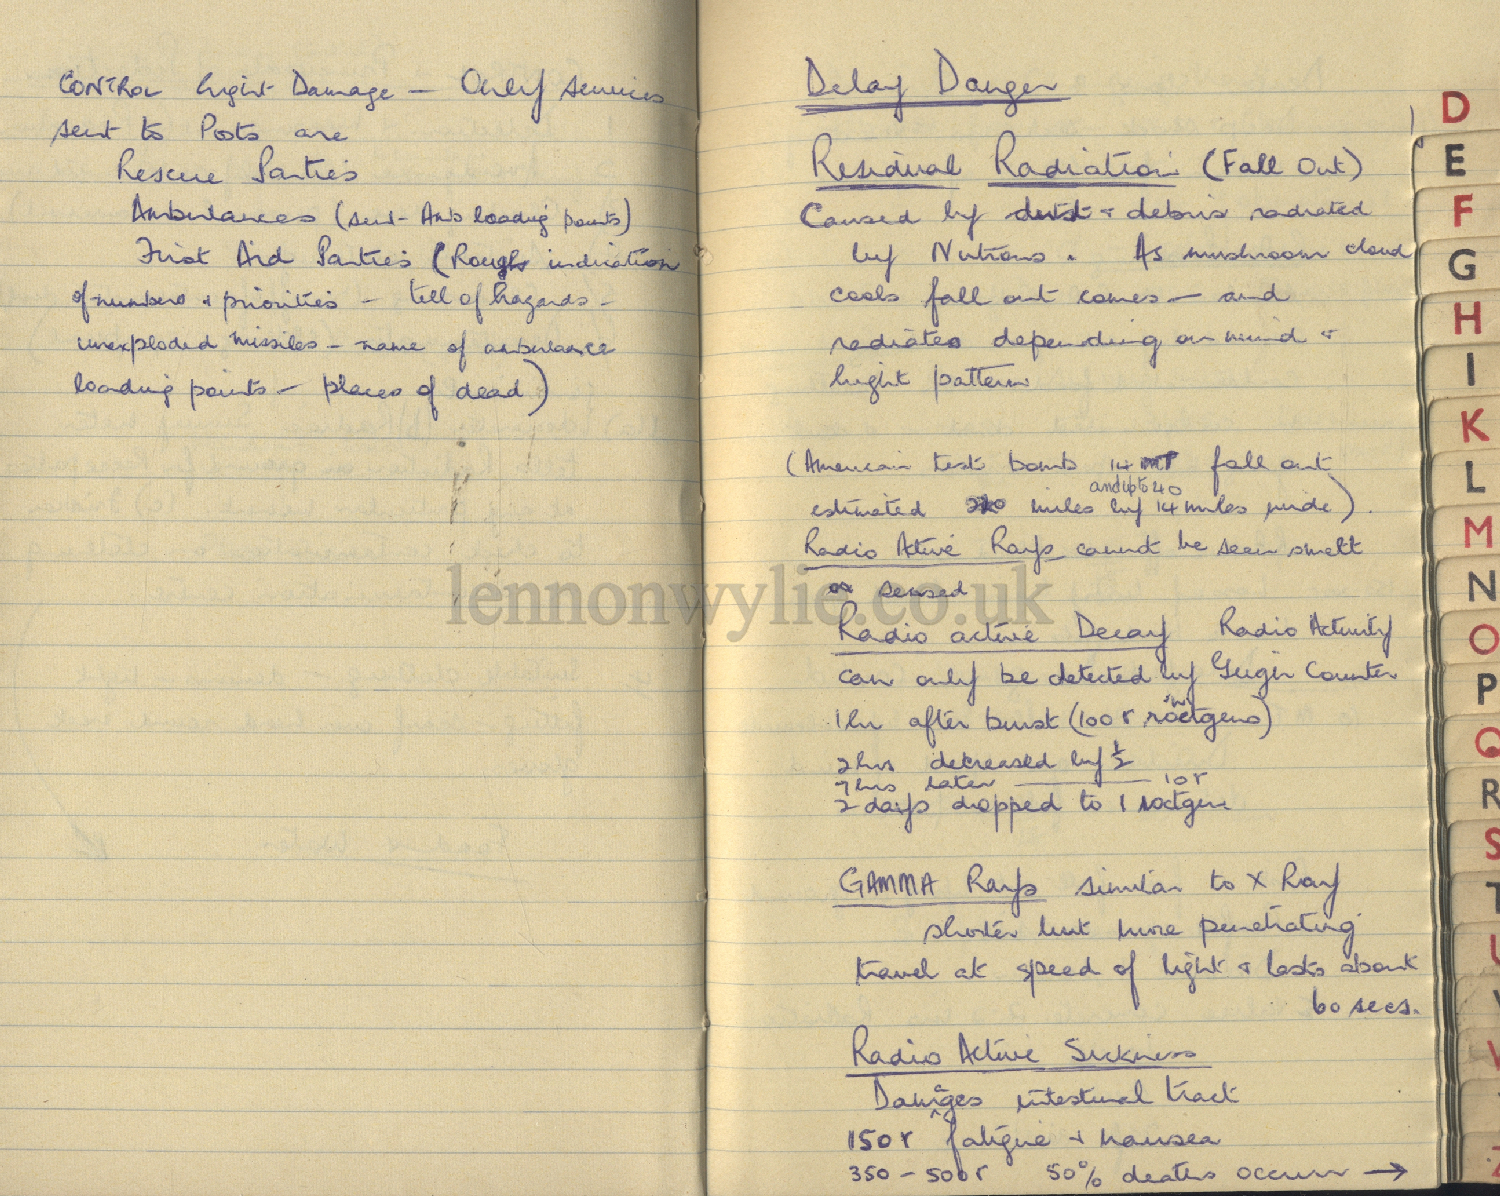 CONTROL Light Damage – Only services
sent to Posts are
Rescue Parties
Ambulances (sent - Amb loading points)
First Aid Parties (Rough indication
of numbers & priorities – tell of hazards –
unexploded missiles – name of ambulance
loading points – places of dead)
Delay Danger
Residual Radiation (Fall Out)
Caused by dust & debris radiated
by Nutrons. As mushroom cloud
cools fall out comes – and
radiates depending on wind &
height pattern
(American test bomb 14 MT fall out
and up to 40
estimated miles by 14 miles wide).
Radio Active Rays cannot be seen smelt
or sensed
lennonwylie.co.uk
Radio active Decay Radio Activity
can only be detected by Geiger Counter
1 hr after burst (100 r röetgens)
2 hrs decreased by ½
7 hrs later ——— 10 r
2 days dropped to 1 roetgen
GAMMA Rays similar to X Ray
shorter but more penetrating
travel at speed of light & lasts about
60 secs.
Radio Active Sickness
Damages intestinal tract
150 r fatigue & nausea
350 – 500 r 50% deaths occur →
D
E
F
G
H
I
K
L
M
N
O
P
Q
R
S
T
U
V
W
Z